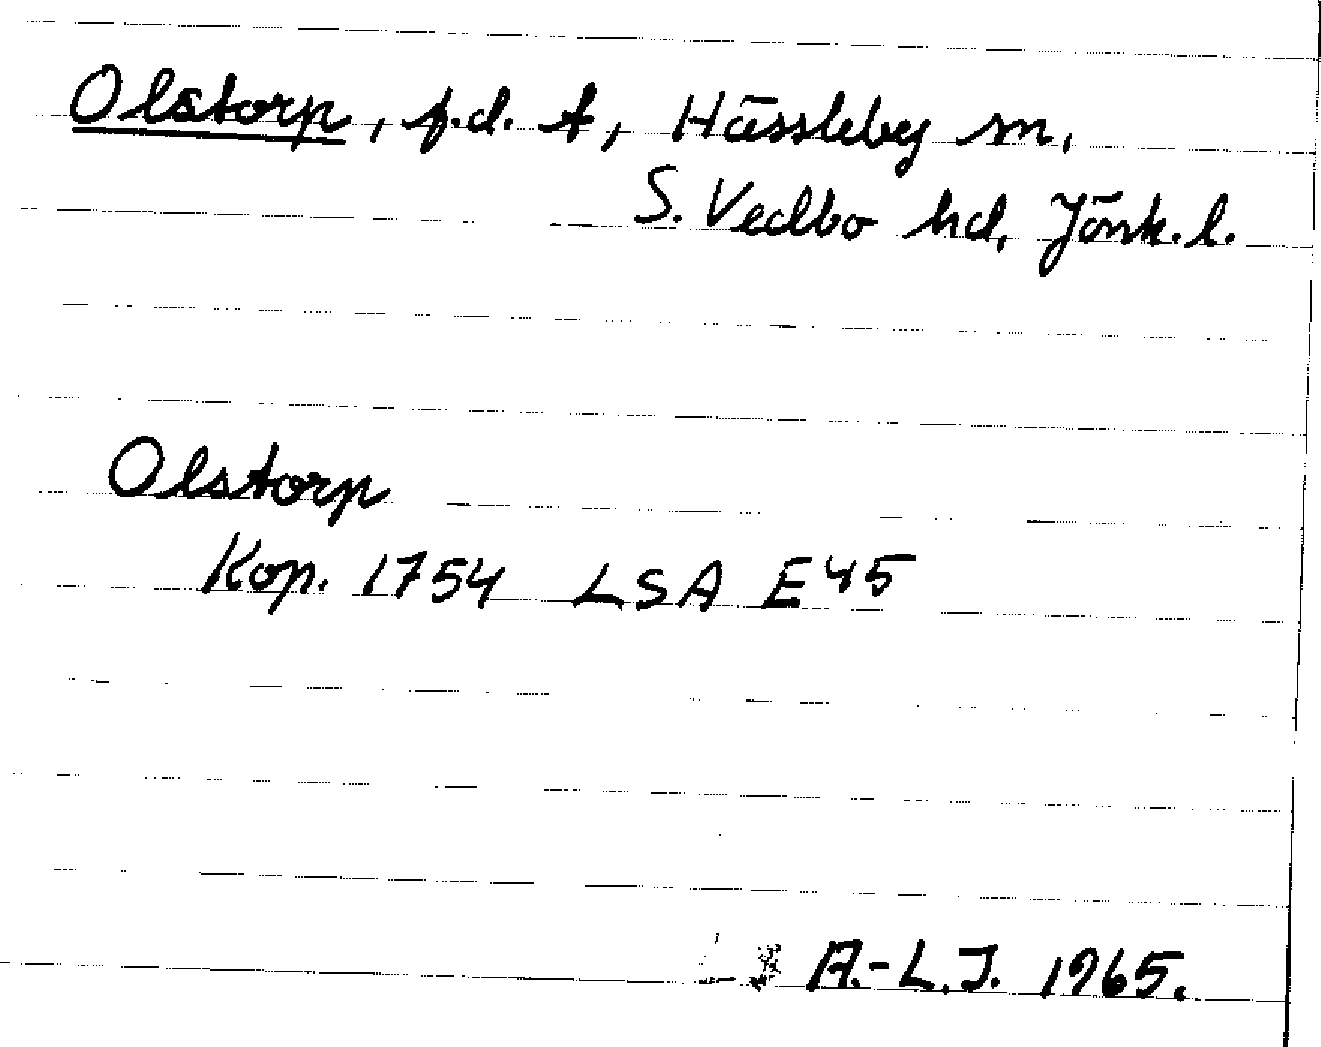 Olstorp, f.d. t, Hässleby sn,
S. Vedbo hd, Jönk. l.
Olstorp
Kop. 1754 LSA E 45
A.-L.J. 1965.